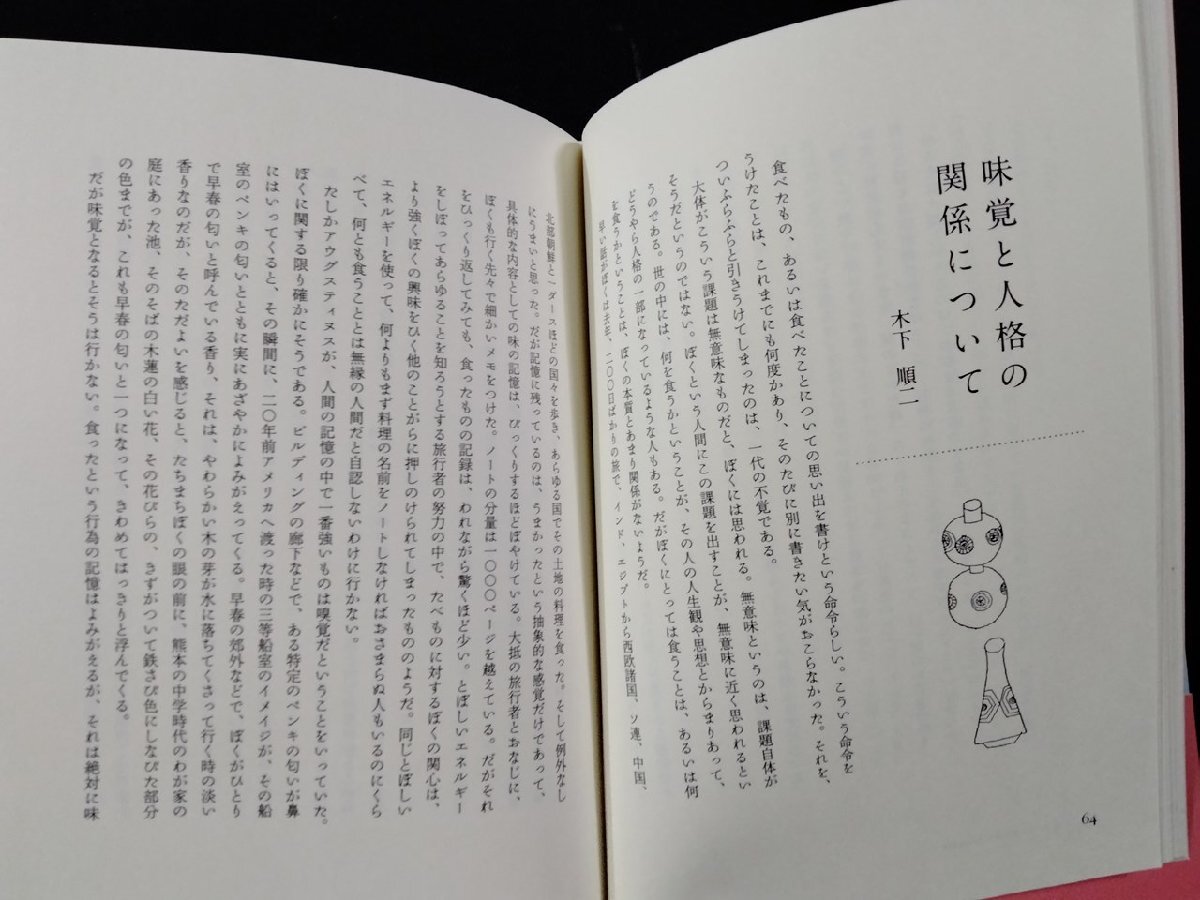 味覚と人格の
関係について
木下 順二
食べたもの、あるいは食べたことについての思い出を書けという命令らしい。こういう命令を
うけたことは、これまでにも何度かあり、そのたびに別に書きたい気がおこらなかった。それを、
ついふらふらと引きうけてしまったのは、一代の不覚である。
大体がこういう課題は無意味なものだと、ぼくには思われる。無意味というのは、課題自体が
そうだというのではない。ぼくという人間にこの課題を出すことが、無意味に近く思われるとい
うのである。世の中には、何を食うかということが、その人の人生観や思想とからまりあって、
どうやら人格の一部になっているような人もある。だがぼくにとっては食うことは、あるいは何
を食うかということは、ぼくの本質とあまり関係がないようだ。
早い話がぼくは去年、二〇〇日ばかりの旅で、インド、エジプトから西欧諸国、ソ連、中国、
64
北部朝鮮と一ダースほどの国々を歩き、あらゆる国でその土地の料理を食った。そして例外なし
にうまいと思った。だが記憶に残っているのは、うまかったという抽象的な感覚だけであって、
具体的な内容としての味の記憶は、びっくりするほどぼやけている。大抵の旅行者とおなじに、
ぼくも行く先々で細かいメモをつけた。ノートの分量は一〇〇〇ページを越えている。だがそれ
をひっくり返してみても、食ったものの記録は、われながら驚くほど少い。とぼしいエネルギー
をしぼってあらゆることを知ろうとする旅行者の努力の中で、たべものに対するぼくの関心は、
より強くぼくの興味をひく他のことがらに押しのけられてしまったもののようだ。同じとぼしい
エネルギーを使って、何よりもまず料理の名前をノートしなければおさまらぬ人もいるのにくら
べて、何とも食うこととは無縁の人間だと自認しないわけに行かない。
たしかアウグスティヌスが、人間の記憶の中で一番強いものは嗅覚だということをいっていた。
ぼくに関する限り確かにそうである。ビルディングの廊下などで、ある特定のペンキの匂いが鼻
にはいってくると、その瞬間に、二〇年前アメリカへ渡った時の三等船室のイメイジが、その船
室のペンキの匂いとともに実にあざやかによみがえってくる。早春の郊外などで、ぼくがひとり
で早春の匂いと呼んでいる香り、それは、やわらかい木の芽が水に落ちてくさって行く時の淡い
香りなのだが、そのただよいを感じると、たちまちぼくの眼の前に、熊本の中学時代のわが家の
庭にあった池、そのそばの木蓮の白い花、その花びらの、きずがついて鉄さび色にしなびた部分
の色までが、これも早春の匂いと一つになって、きわめてはっきりと浮んでくる。
だが味覚となるとそうは行かない。食ったという行為の記憶はよみがえるが、それは絶対に味